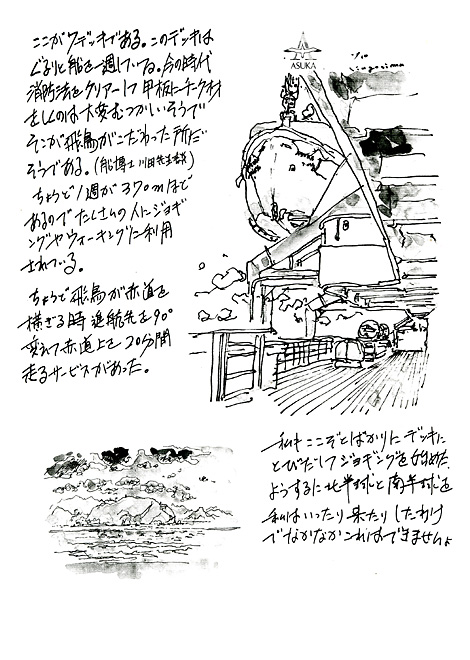 ここが7デッキである。このデッキは
ぐるりと船を一週している。今の時代
消防法をクリアーして甲板にチーク材
をしくのは大変むつかしいそうで
そこが飛鳥がこだわった所だ
そうである。(船博士 川田先生談)
ちょうど1週が370mほど
あるのでたくさんの人にジョギ
ングやウォーキングに利用
されている。
ちょうど飛鳥が赤道を
横ぎる時進航先を90°
変えて赤道上を20分間
走るサービスがあった。
ASUKA
7/10
Kagoshima
私もここぞとばかりにデッキに
とびだしてジョギングを始めた。
ようするに北半球と南半球を
私はいったり来たりしたわけ
でなかなかこれはできませんよ